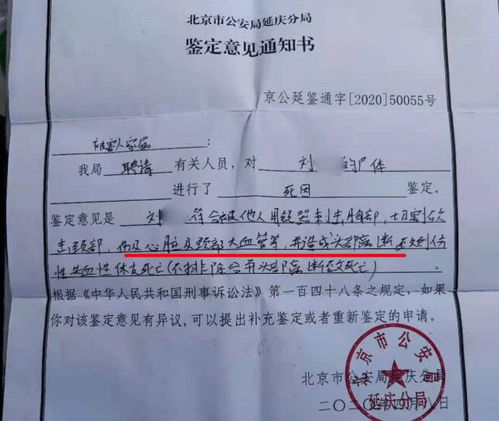 北京市公安局延庆分局
鉴定意见通知书
京公延鉴通字[2020]50055号
被害人家属:
我局 聘请 有关人员,对 刘 的尸体
进行了 死因 鉴定。
鉴定意见是 刘 符合被他人用锐器刺击胸部,切割砍
击颈部,伤及心脏及颈部大血管等,并造成头部离断 致创伤
性失血性休克死亡(不排除合并头部离断致死亡)
根据《中华人民共和国刑事诉讼法》第一百四十八条之规定,如果
你对该鉴定意见有异议,可以提出补充鉴定或者重新鉴定的申请。
北京市公安局延庆分局
北京市公安局延庆分局
二〇二〇年四月八日